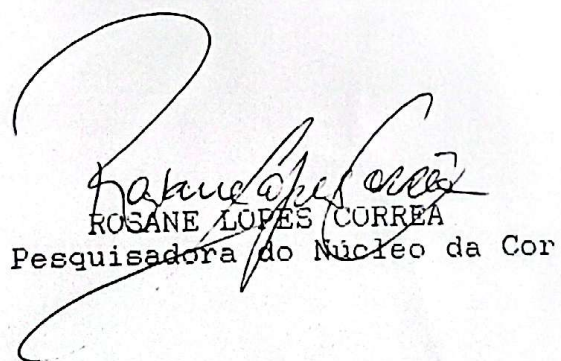 Rosane Lopes Corrêa
ROSANE LOPES CORREA
Pesquisadora do Núcleo da Cor